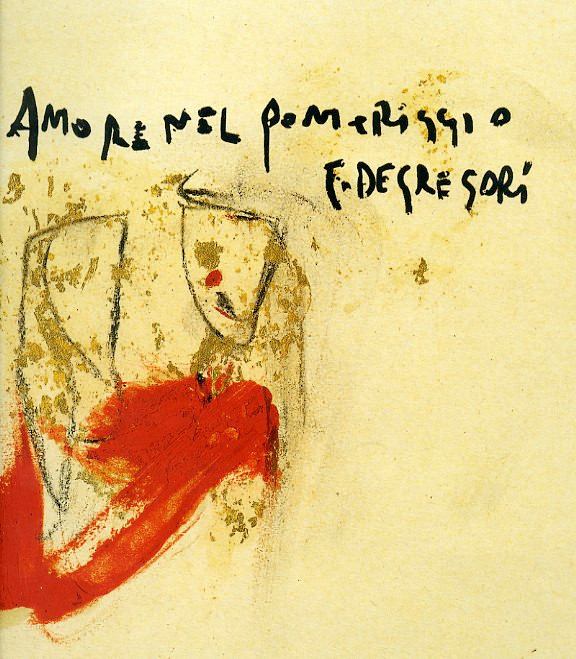 AMORE NEL POMERIGGIO
F. DEGREGORI